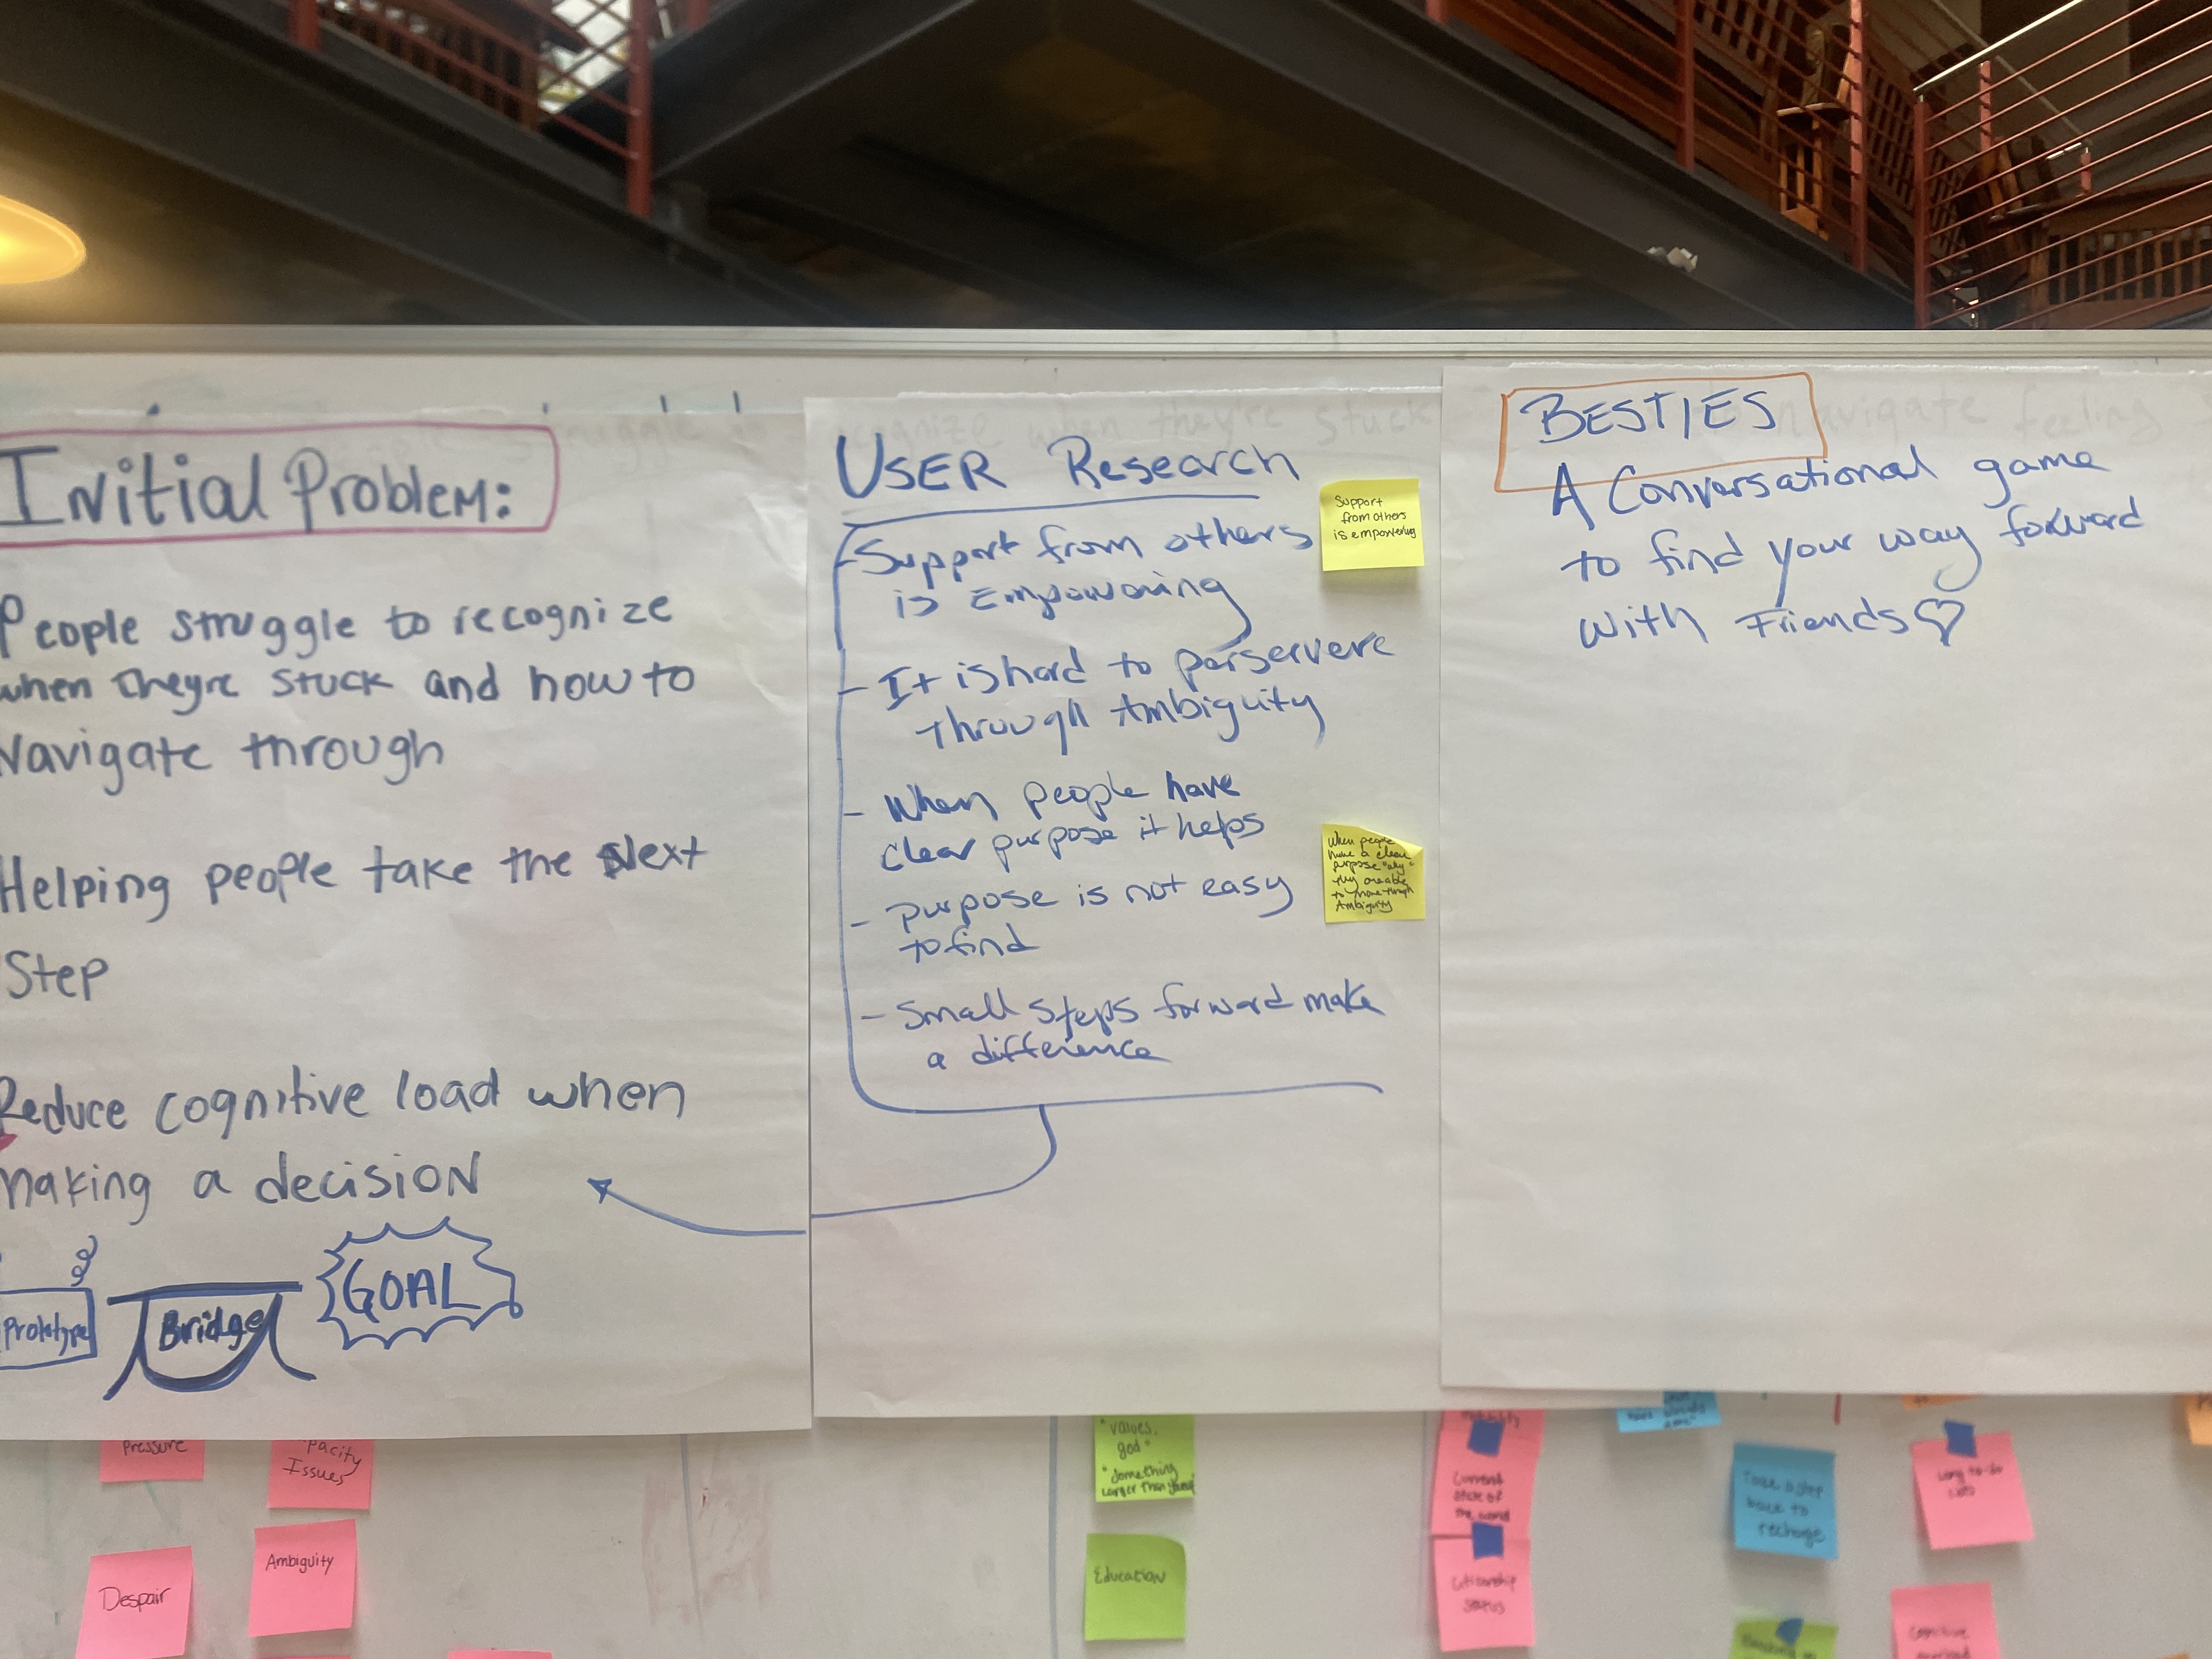 Initial Problem:
People struggle to recognize
when they're stuck and how to
Navigate through
Helping people take the Next
Step
Reduce cognitive load when
making a decision
Prototype
Bridge
GOAL
USER Research
- Support from others
is Empowering
- It is hard to perservere
through Ambiguity
- When people have
clear purpose it helps
- purpose is not easy
to find
- Small steps forward make
a difference
Support
from others
is empowering
When people
have a clear
purpose "why"
they are able
to move through
Ambiguity
BESTIES
A Conversational game
to find your way forward
with Friends♡
struggle
recognize when they're stuck
navigate feeling
Pressure
pacity
Issues
Despair
Ambiguity
"values,
god"
"Something
larger than
Education
Current
state of
the world
Citizenship
Status
Take a step
back to
recharge
Long to-do
lists
Cognitive
overload